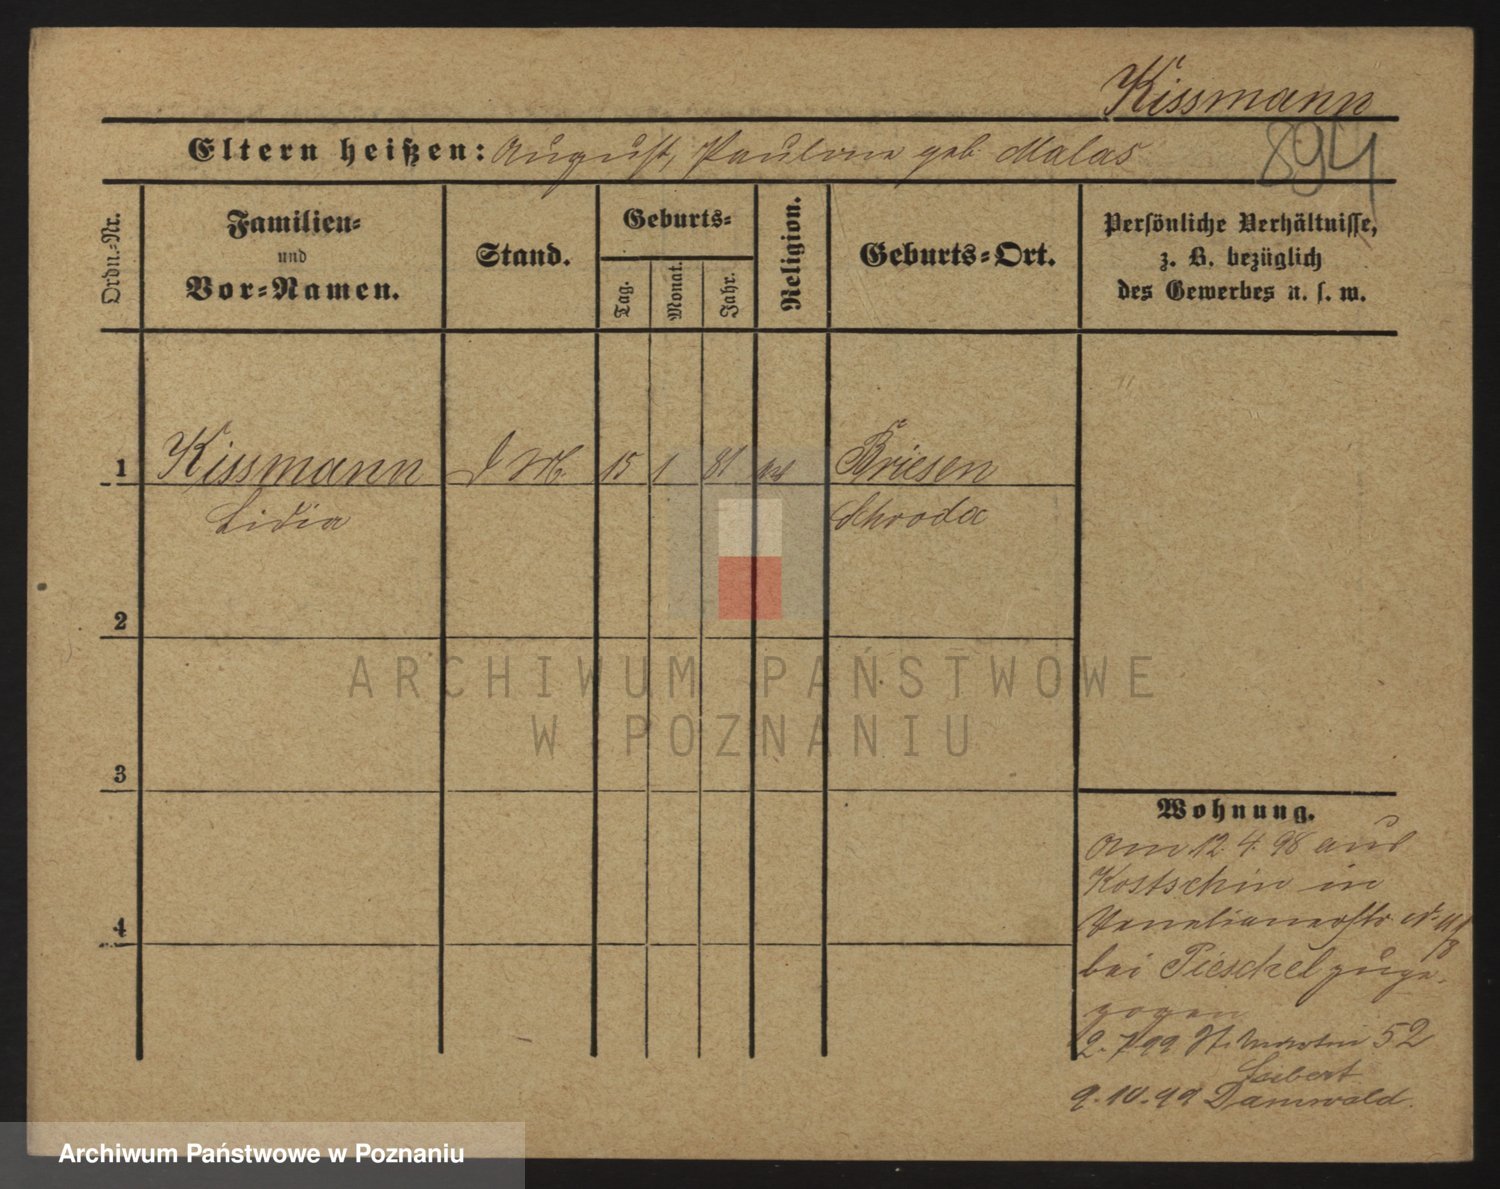 Kissmann
Eltern heißen: August, Pauline geb Malas
894
Ordn.-Nr.
Familien-
und
Vor-Namen.
Stand.
Geburts-
Tag.
Monat.
Jahr.
Religion.
Geburts-Ort.
Persönliche Verhältnisse,
z. B. bezüglich
des Gewerbes u. s. w.
1
Kissmann
D M.
15
1
81
Briesen
Lidia
Schroda
2
ARCHIWUM PAŃSTWOWE
W POZNANIU
3
Wohnung.
Am 12. 4. 98 aus
Kostschin in
4
bei Pieschel zuge-
zogen
2. 7 99 St. Martin 52
9. 10. 99
Archiwum Państwowe w Poznaniu